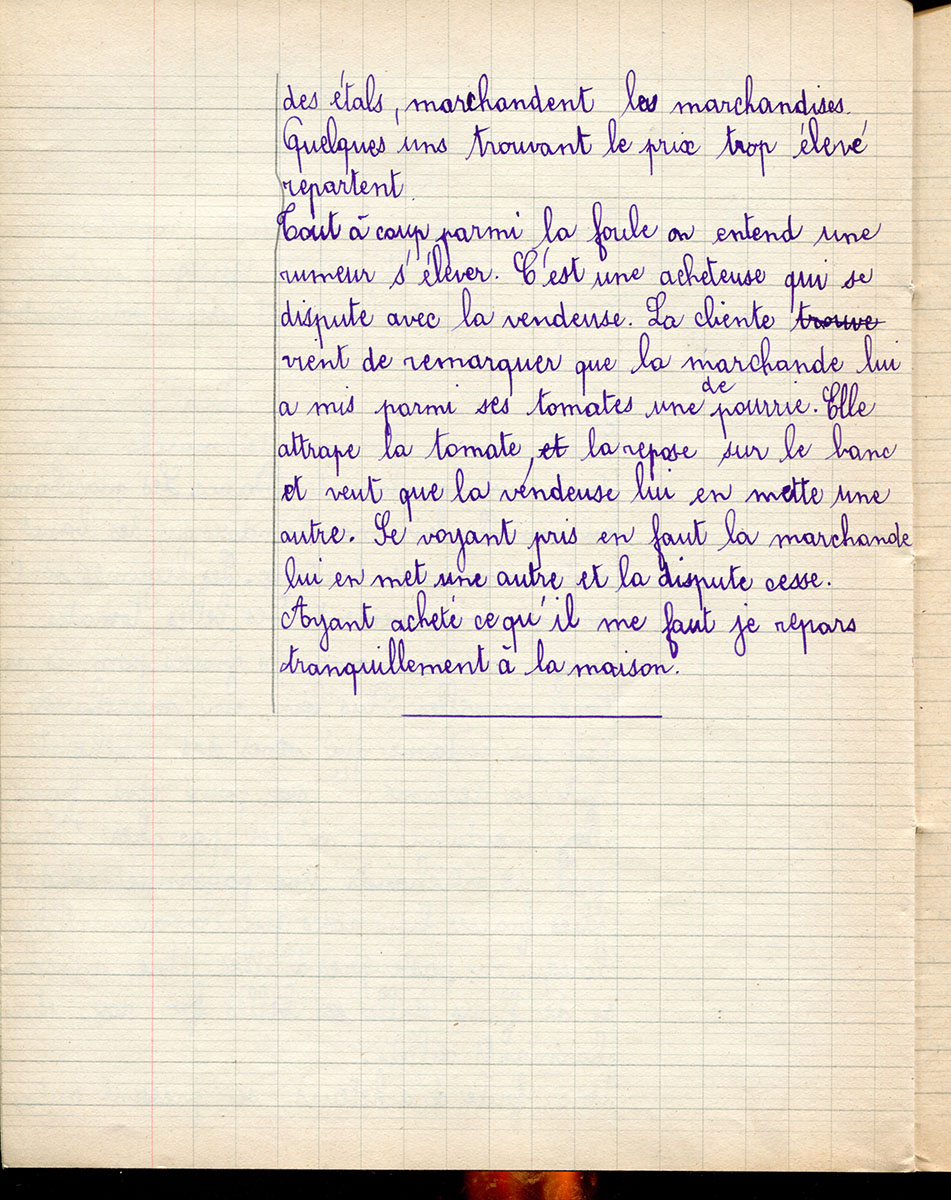 des étals, marchandent les marchandises.
Quelques uns trouvant le prix trop élevé
repartent.
Tout à coup parmi la foule on entend une
rumeur s'élever. C'est une acheteuse qui se
dispute avec la vendeuse. La cliente trouve
vient de remarquer que la marchande lui
a mis parmi ses tomates une de pourrie. Elle
attrape la tomate, et la repose sur le banc
et veut que la vendeuse lui en mette une
autre. Se voyant pris en faut la marchande
lui en met une autre et la dispute cesse.
Ayant acheté ce qu'il me faut je repars
tranquillement à la maison.